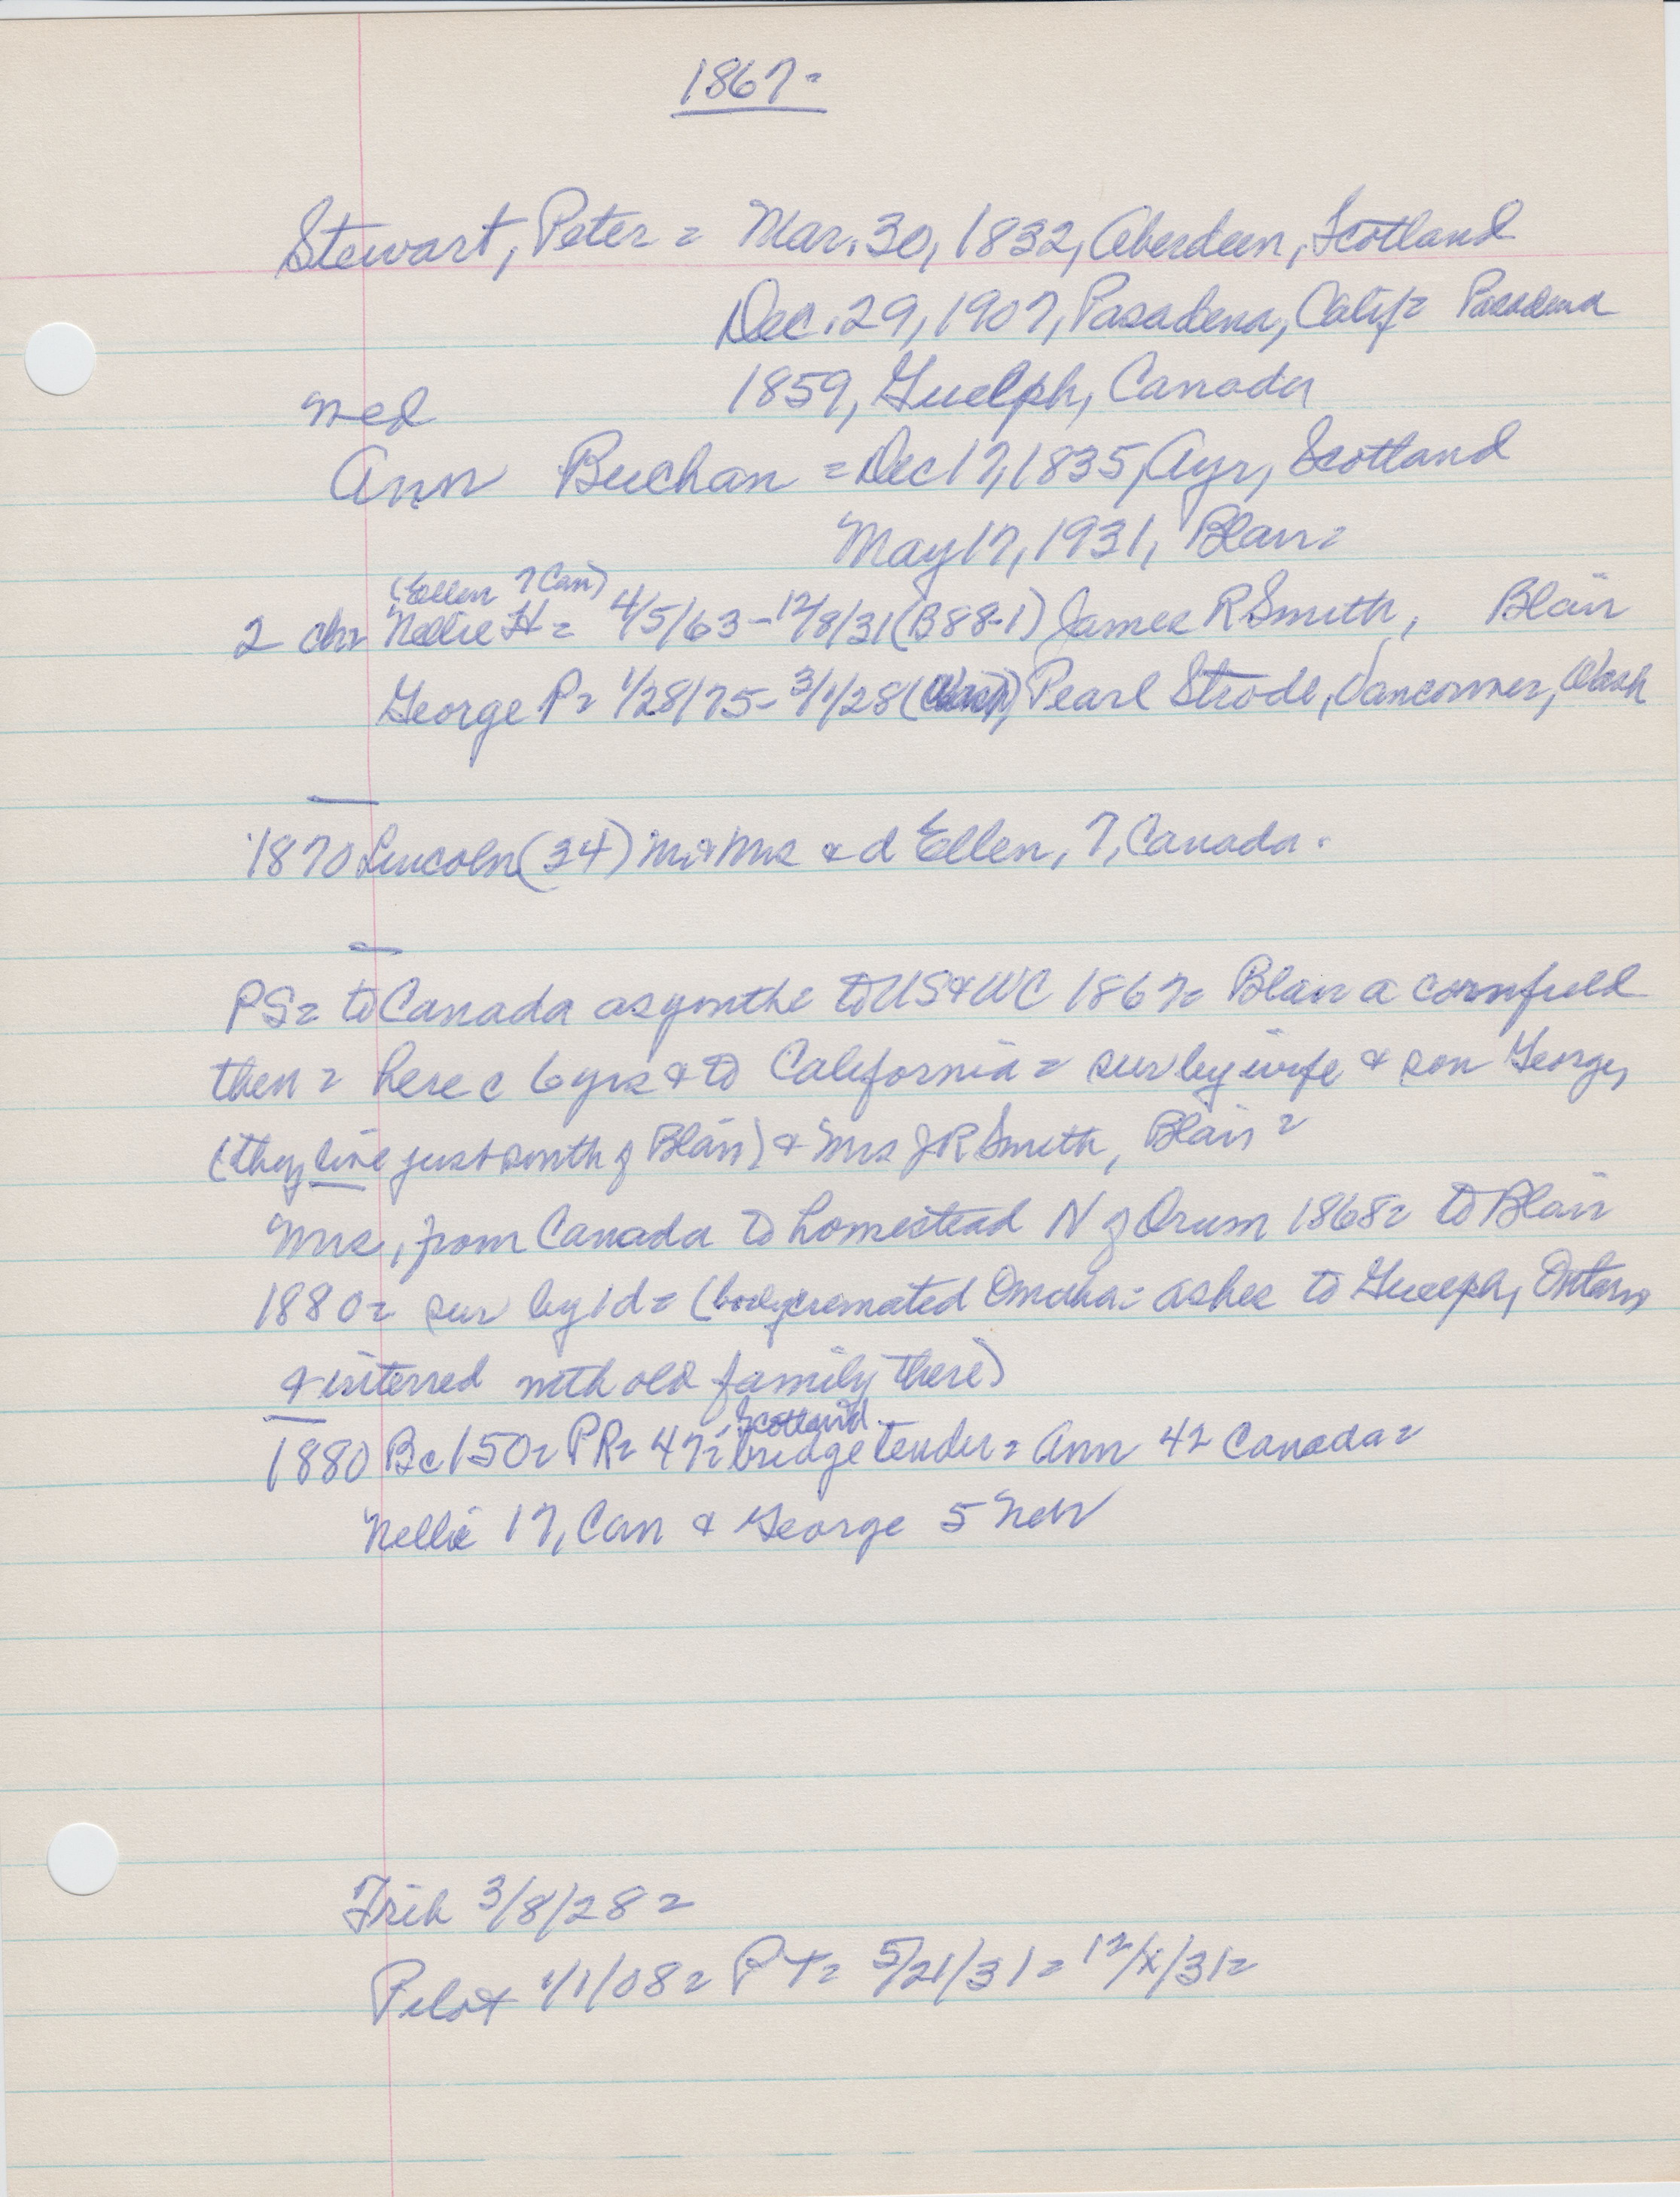 1867=
Stewart, Peter = Mar. 30, 1832, Aberdeen, Scotland
Dec. 29, 1907, Pasadena, Calif = Pasadena
med 1859, Guelph, Canada
Ann Buchan = Dec 17, 1835, Ayr, Scotland
May 17, 1931, Blair =
(Ellen 7 Can)
2 chr Nellie H = 4/5/63 - 12/8/31 (B88-1) James R Smith, Blair
George P = 1/28/75 - 3/1/28 (Wash) Pearl Strode, Vancouver, Wash
1870 Lincoln (34) Mr & Mrs & d Ellen, 7, Canada.
PS = to Canada as youth & to US & WC 1867 = Blair a cornfield
then = here c 6 yrs & to California = sur by wife & son George,
(they live just south of Blair) & Mrs JR Smith, Blair =
Mrs, from Canada to homestead N of Orum 1868 = to Blair
1880 = sur by 1d = (body cremated Omaha = ashes to Guelph, Ontario
& interred with old family there)
Scotland
1880 Bc 150 = PR = 47 = bridge tender = Ann 42 Canada =
Nellie 17, Can & George 5 Neb
Trib 3/8/28 =
Pilot 1/1/08 = PT = 5/21/31 = 12/x/31 =